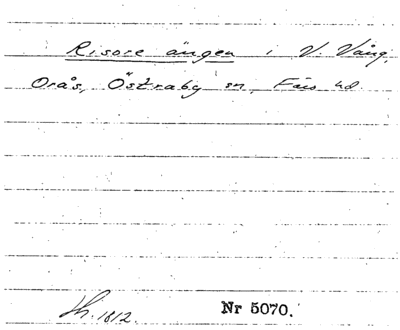 Risore ängen i V. Vång,
Orås, Östraby sn, Färs hd.
Sh. 1812. Nr 5070.